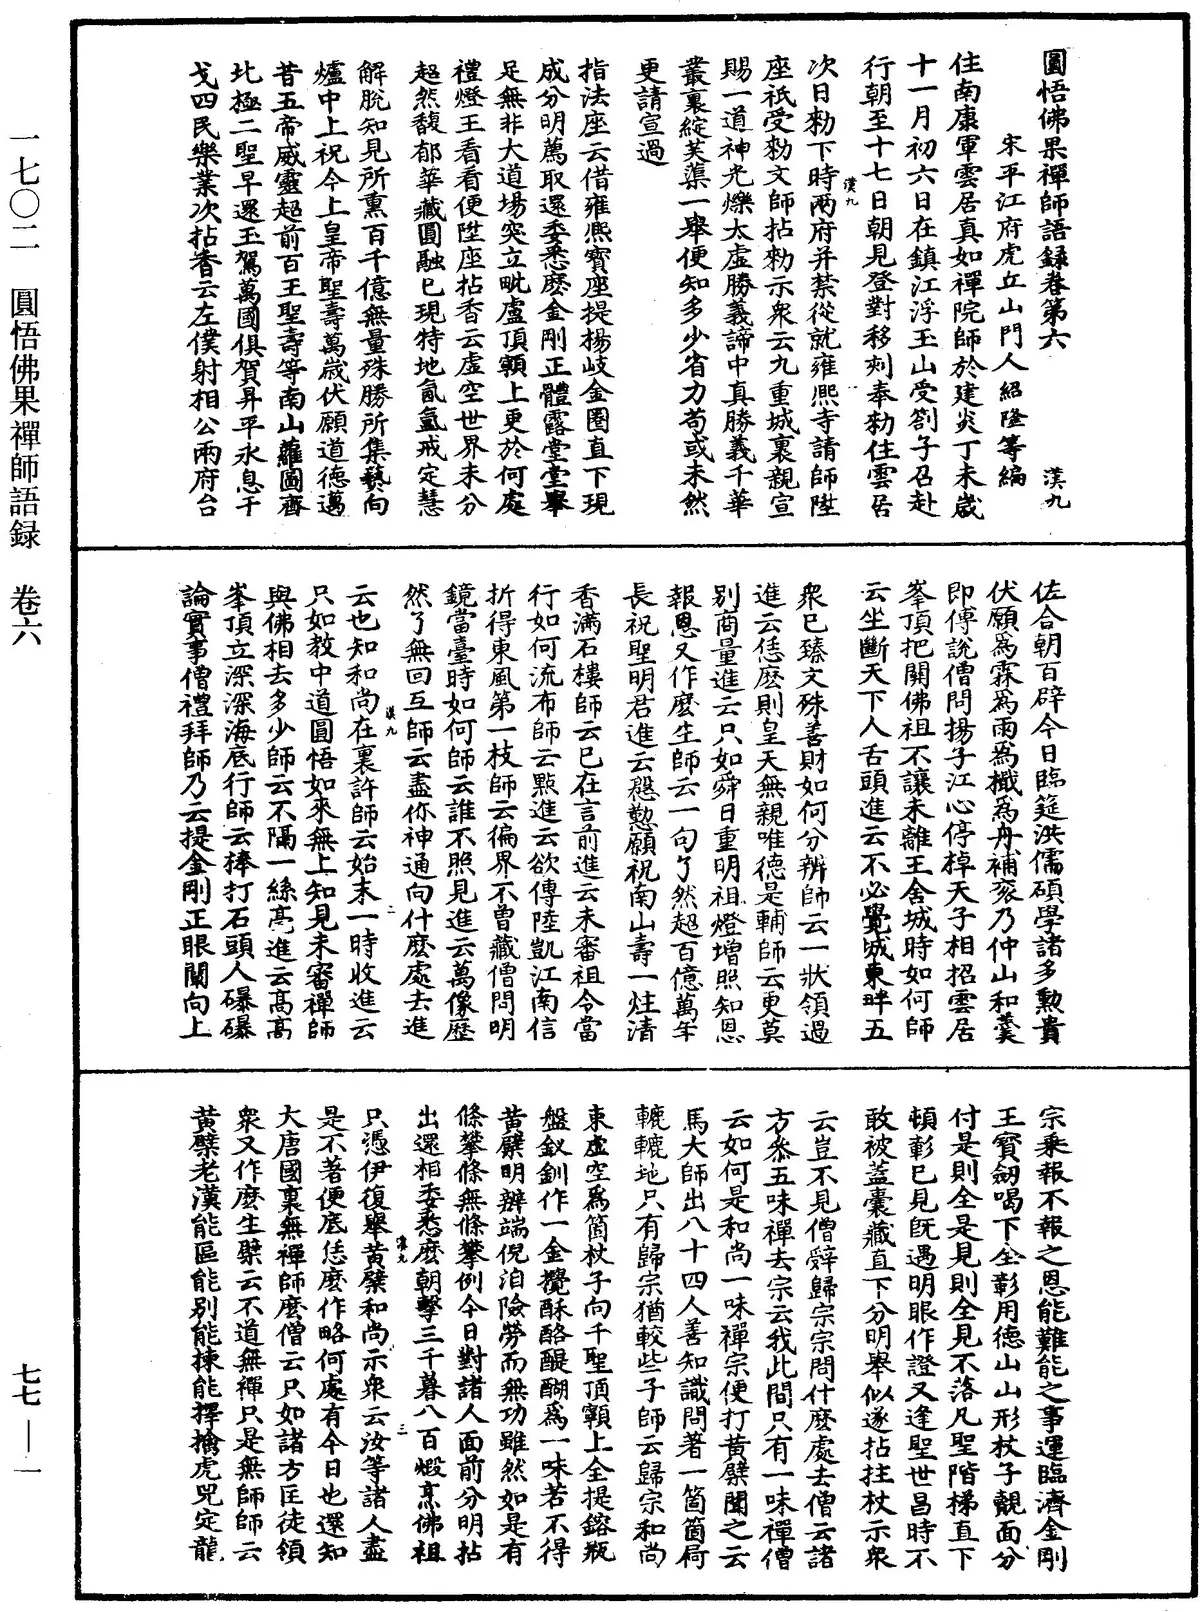 圓悟佛果禪師語録卷第六　漢九
宋平江府虎丘山門人紹隆等編
住南康軍雲居真如禪院師於建炎丁未歲
十一月初六日在鎮江浮玉山受劄子召赴
行朝至十七日朝見登對移刻奉勑住雲居
次日勑下時兩府并禁從就雍熙寺請師陞
座祇受勑文師拈勑示衆云九重城裏親宣
賜一道神光爍太虛勝義諦中真勝義千華
叢裏綻芙蕖一舉便知多少省力苟或未然
更請宣過
指法座云借雍熙寶座提楊岐金圈直下現
成分明薦取還委悉麽金剛正體露堂堂舉
足無非大道場突立毗盧頂顙上更於何處
禮燈王看看便陞座拈香云虛空世界未分
超然馥郁華藏圓融已現特地氤氳戒定慧
解脫知見所熏百千億無量殊勝所集爇向
爐中上祝今上皇帝聖壽萬歲伏願道德邁
昔五帝威靈超前百王聖壽等南山蘿圖齊
北極二聖早還玉駕萬國俱賀昇平永息干
戈四民樂業次拈香云左僕射相公兩府台
佐合朝百辟今日臨筵洪儒碩學諸多勲貴
伏願爲霖爲雨爲檝爲舟補衮乃仲山和羹
即傳說僧問揚子江心停棹天子相招雲居
峯頂把關佛祖不讓未離王舍城時如何師
云坐斷天下人舌頭進云不必覺城東畔五
衆已臻文殊善財如何分辨師云一狀領過
進云恁麽則皇天無親唯德是輔師云更莫
別商量進云只如舜日重明祖燈增照知恩
報恩又作麽生師云一句了然超百億萬年
長祝聖明君進云慇懃願祝南山壽一炷清
香滿石樓師云已在言前進云未審祖令當
行如何流布師云點進云欲傳陸凱江南信
折得東風第一枝師云徧界不曾藏僧問明
鏡當臺時如何師云誰不照見進云萬像歷
然了無回互師云盡你神通向什麽處去進
云也知和尚在裏許師云始末一時收進云
只如教中道圓悟如來無上知見未審禪師
與佛相去多少師云不隔一絲毫進云髙髙
峯頂立深深海底行師云棒打石頭人曝曝
論實事僧禮拜師乃云提金剛正眼闡向上
宗乘報不報之恩能難能之事運臨濟金剛
王寶劒喝下全彰用德山山形杖子覿面分
付是則全是見則全見不落凡聖階梯直下
頓彰已見旣遇明眼作證又逢聖世昌時不
敢被蓋囊藏直下分明舉似遂拈拄杖示衆
云豈不見僧辤歸宗宗問什麽處去僧云諸
方叅五味禪去宗云我此間只有一味禪僧
云如何是和尚一味禪宗便打黄檗聞之云
馬大師出八十四人善知識問著一箇箇屙
轆轆地只有歸宗猶較些子師云歸宗和尚
東虛空爲箇杖子向千聖頂顙上全提鎔瓶
盤釵釧作一金攪酥酪醍醐爲一味若不得
黄檗明辨端倪洎險勞而無功雖然如是有
條攀條無條攀例今日對諸人面前分明拈
出還相委悉麽朝擊三千暮八百煆烹佛祖
只憑伊復舉黄檗和尚示衆云汝等諸人盡
是不著便底恁麽作略何處有今日也還知
大唐國裏無禪師麽僧云只如諸方匡徒領
衆又作麽生檗云不道無禪只是無師師云
黄檗老漢能區能別能揀能擇擒虎兕定龍
漢九
漢九
二
漢九
三
一七〇二　圓悟佛果禪師語録　卷六
七七——一